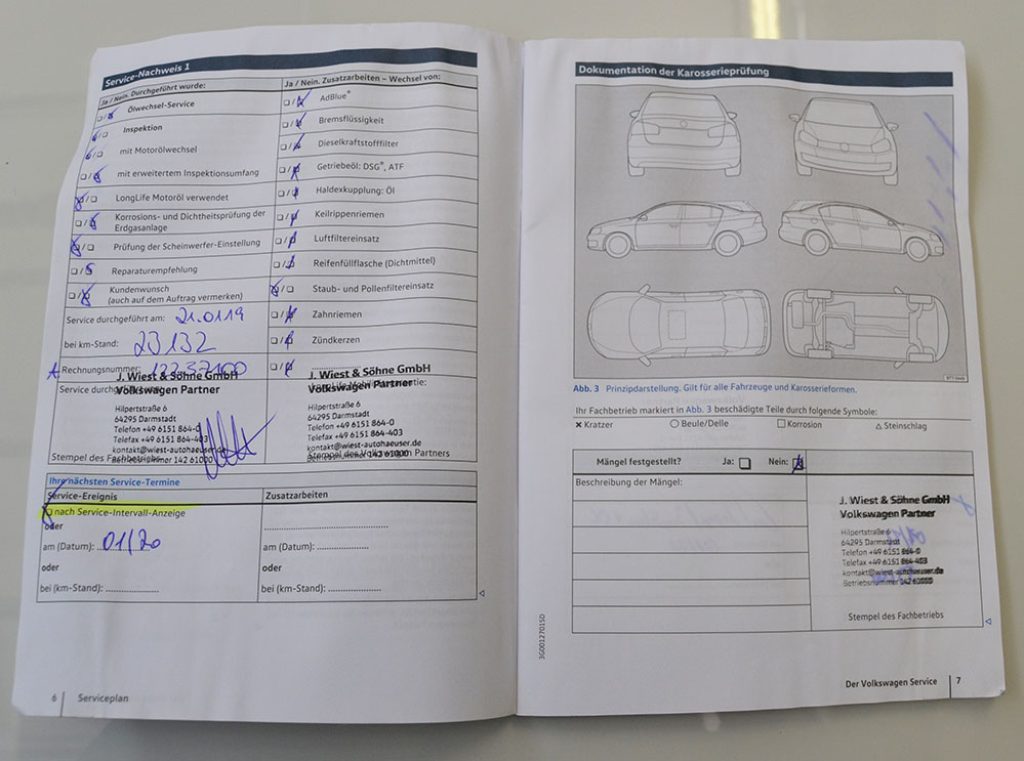 Service-Nachweis 1
Ja / Nein. Durchgeführt wurde:
Ja / Nein. Zusatzarbeiten – Wechsel von:
Ölwechsel-Service
AdBlue®
Inspektion
Bremsflüssigkeit
mit Motorölwechsel
Dieselkraftstofffilter
mit erweitertem Inspektionsumfang
Getriebeöl: DSG®, ATF
LongLife Motoröl verwendet
Haldexkupplung: Öl
Korrosions- und Dichtheitsprüfung der
Erdgasanlage
Keilrippenriemen
Prüfung der Scheinwerfer-Einstellung
Luftfiltereinsatz
Reparaturempfehlung
Reifenfüllflasche (Dichtmittel)
Kundenwunsch
(auch auf dem Auftrag vermerken)
Staub- und Pollenfiltereinsatz
Service durchgeführt am: 21.0119
Zahnriemen
bei km-Stand: 23132
Zündkerzen
Rechnungsnummer:
Service durchgeführt
J. Wiest & Söhne GmbH
Volkswagen Partner
Hilpertstraße 6
64295 Darmstadt
Telefon +49 6151 864-0
Telefax +49 6151 864-403
kontakt@wiest-autohaeuser.de
Betriebsnummer 142 61000
Stempel des Fachbetriebs
J. Wiest & Söhne GmbH
Volkswagen Partner
Hilpertstraße 6
64295 Darmstadt
Telefon +49 6151 864-0
Telefax +49 6151 864-403
kontakt@wiest-autohaeuser.de
Stempel des Volkswagen Partners
Ihre nächsten Service-Termine
Service-Ereignis
Zusatzarbeiten
nach Service-Intervall-Anzeige
oder
am (Datum): 01/20
am (Datum):
oder
oder
bei (km-Stand):
bei (km-Stand):
6 Serviceplan
Dokumentation der Karosserieprüfung
Abb. 3 Prinzipdarstellung. Gilt für alle Fahrzeuge und Karosserieformen.
Ihr Fachbetrieb markiert in Abb. 3 beschädigte Teile durch folgende Symbole:
× Kratzer ○ Beule/Delle □ Korrosion △ Steinschlag
Mängel festgestellt? Ja: Nein:
Beschreibung der Mängel:
J. Wiest & Söhne GmbH
Volkswagen Partner
Hilpertstraße 6
64295 Darmstadt
Telefon +49 6151 864-0
Telefax +49 6151 864-403
kontakt@wiest-autohaeuser.de
Betriebsnummer 142 61000
Stempel des Fachbetriebs
3G0012701SD
Der Volkswagen Service 7